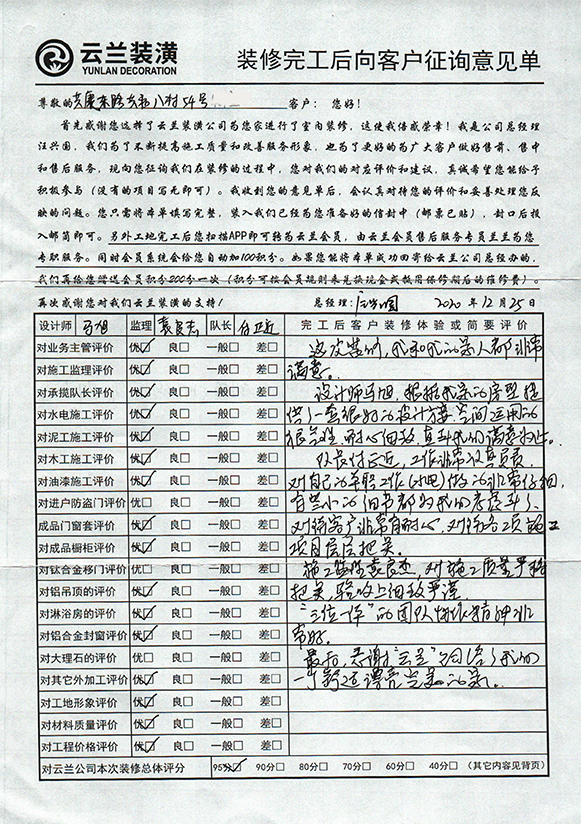 云兰装潢
YUNLAN DECORATION
装修完工后向客户征询意见单
尊敬的 东路 八村54号 客户：您好！
首先感谢您选择了云兰装潢公司为您家进行了室内装修，这使我倍感荣幸！我是公司总经理
汪兴国，我们为了不断提高施工质量和改善服务形象，也为了更好的为广大客户做好售前、售中
和售后服务，现向您征询我们在装修的过程中，您对我们的对应评价和建议，真诚希望您能给予
积极参与（没有的项目写无即可）。我收到您的意见单后，会认真对待您的评价和妥善处理您反
映的问题。您只需将本单填写完整，装入我们已经为您准备好的信封中（邮票已贴），封口后投
入邮筒即可。另外工地完工后您扫描APP即可转为云兰会员，由云兰会员售后服务专员兰兰为您
专职服务。同时会员系统会给您自动加100积分。如果您能将本单成功回寄给云兰总经办的，
我们再给您赠送会员积分200分一次（积分可按会员规则来兑换现金或抵用保修期后的维修费）。
再次感谢您对我们云兰装潢的支持！ 总经理： 2020年12月25日
设计师 马旭 监理 袁良杰 队长 付正近 完工后客户装修体验或简要评价
对业务主管评价 优☑ 良□ 一般□ 差□ 这次装修，我和我的家人都非常
对施工监理评价 优☑ 良□ 一般□ 差□ 满意。
对承揽队长评价 优☑ 良□ 一般□ 差□ 设计师马旭，根据我家的房型提
对水电施工评价 优☑ 良□ 一般□ 差□ 供了一套很好的设计方案，空间运用的
对泥工施工评价 优☑ 良□ 一般□ 差□ 很合理，耐心细致，直到我们满意为止。
对木工施工评价 优☑ 良□ 一般□ 差□ 队长付正近，工作非常认真负责，
对油漆施工评价 优☑ 良□ 一般□ 差□ 对自己的本职工作(水电)做的非常仔细，
对进户防盗门评价 优□ 良□ 一般□ 差□ 有些小的细节都为我们考虑到了，
成品门窗套评价 优☑ 良□ 一般□ 差□ 对待客户非常有耐心，对待各项施工
对成品橱柜评价 优☑ 良□ 一般□ 差□ 项目层层把关。
对钛合金移门评价 优□ 良□ 一般□ 差□ 施工监理袁良杰，对施工质量严格
对铝吊顶的评价 优☑ 良□ 一般□ 差□ 把关，验收上细致严谨。
对淋浴房的评价 优☑ 良□ 一般□ 差□ “三位一体”的团队协作精神非
对铝合金封窗评价 优☑ 良□ 一般□ 差□ 常好。
对大理石的评价 优□ 良□ 一般□ 差□ 最后，感谢“云兰”公司给了我们
对其它外加工评价 优☑ 良□ 一般□ 差□ 一个舒适漂亮完美的家。
对工地形象评价 优☑ 良□ 一般□ 差□
对材料质量评价 优☑ 良□ 一般□ 差□
对工程价格评价 优☑ 良□ 一般□ 差□
对云兰公司本次装修总体评分 95分☑ 90分□ 80分□ 70分□ 60分□ 40分□ （其它内容见背页）